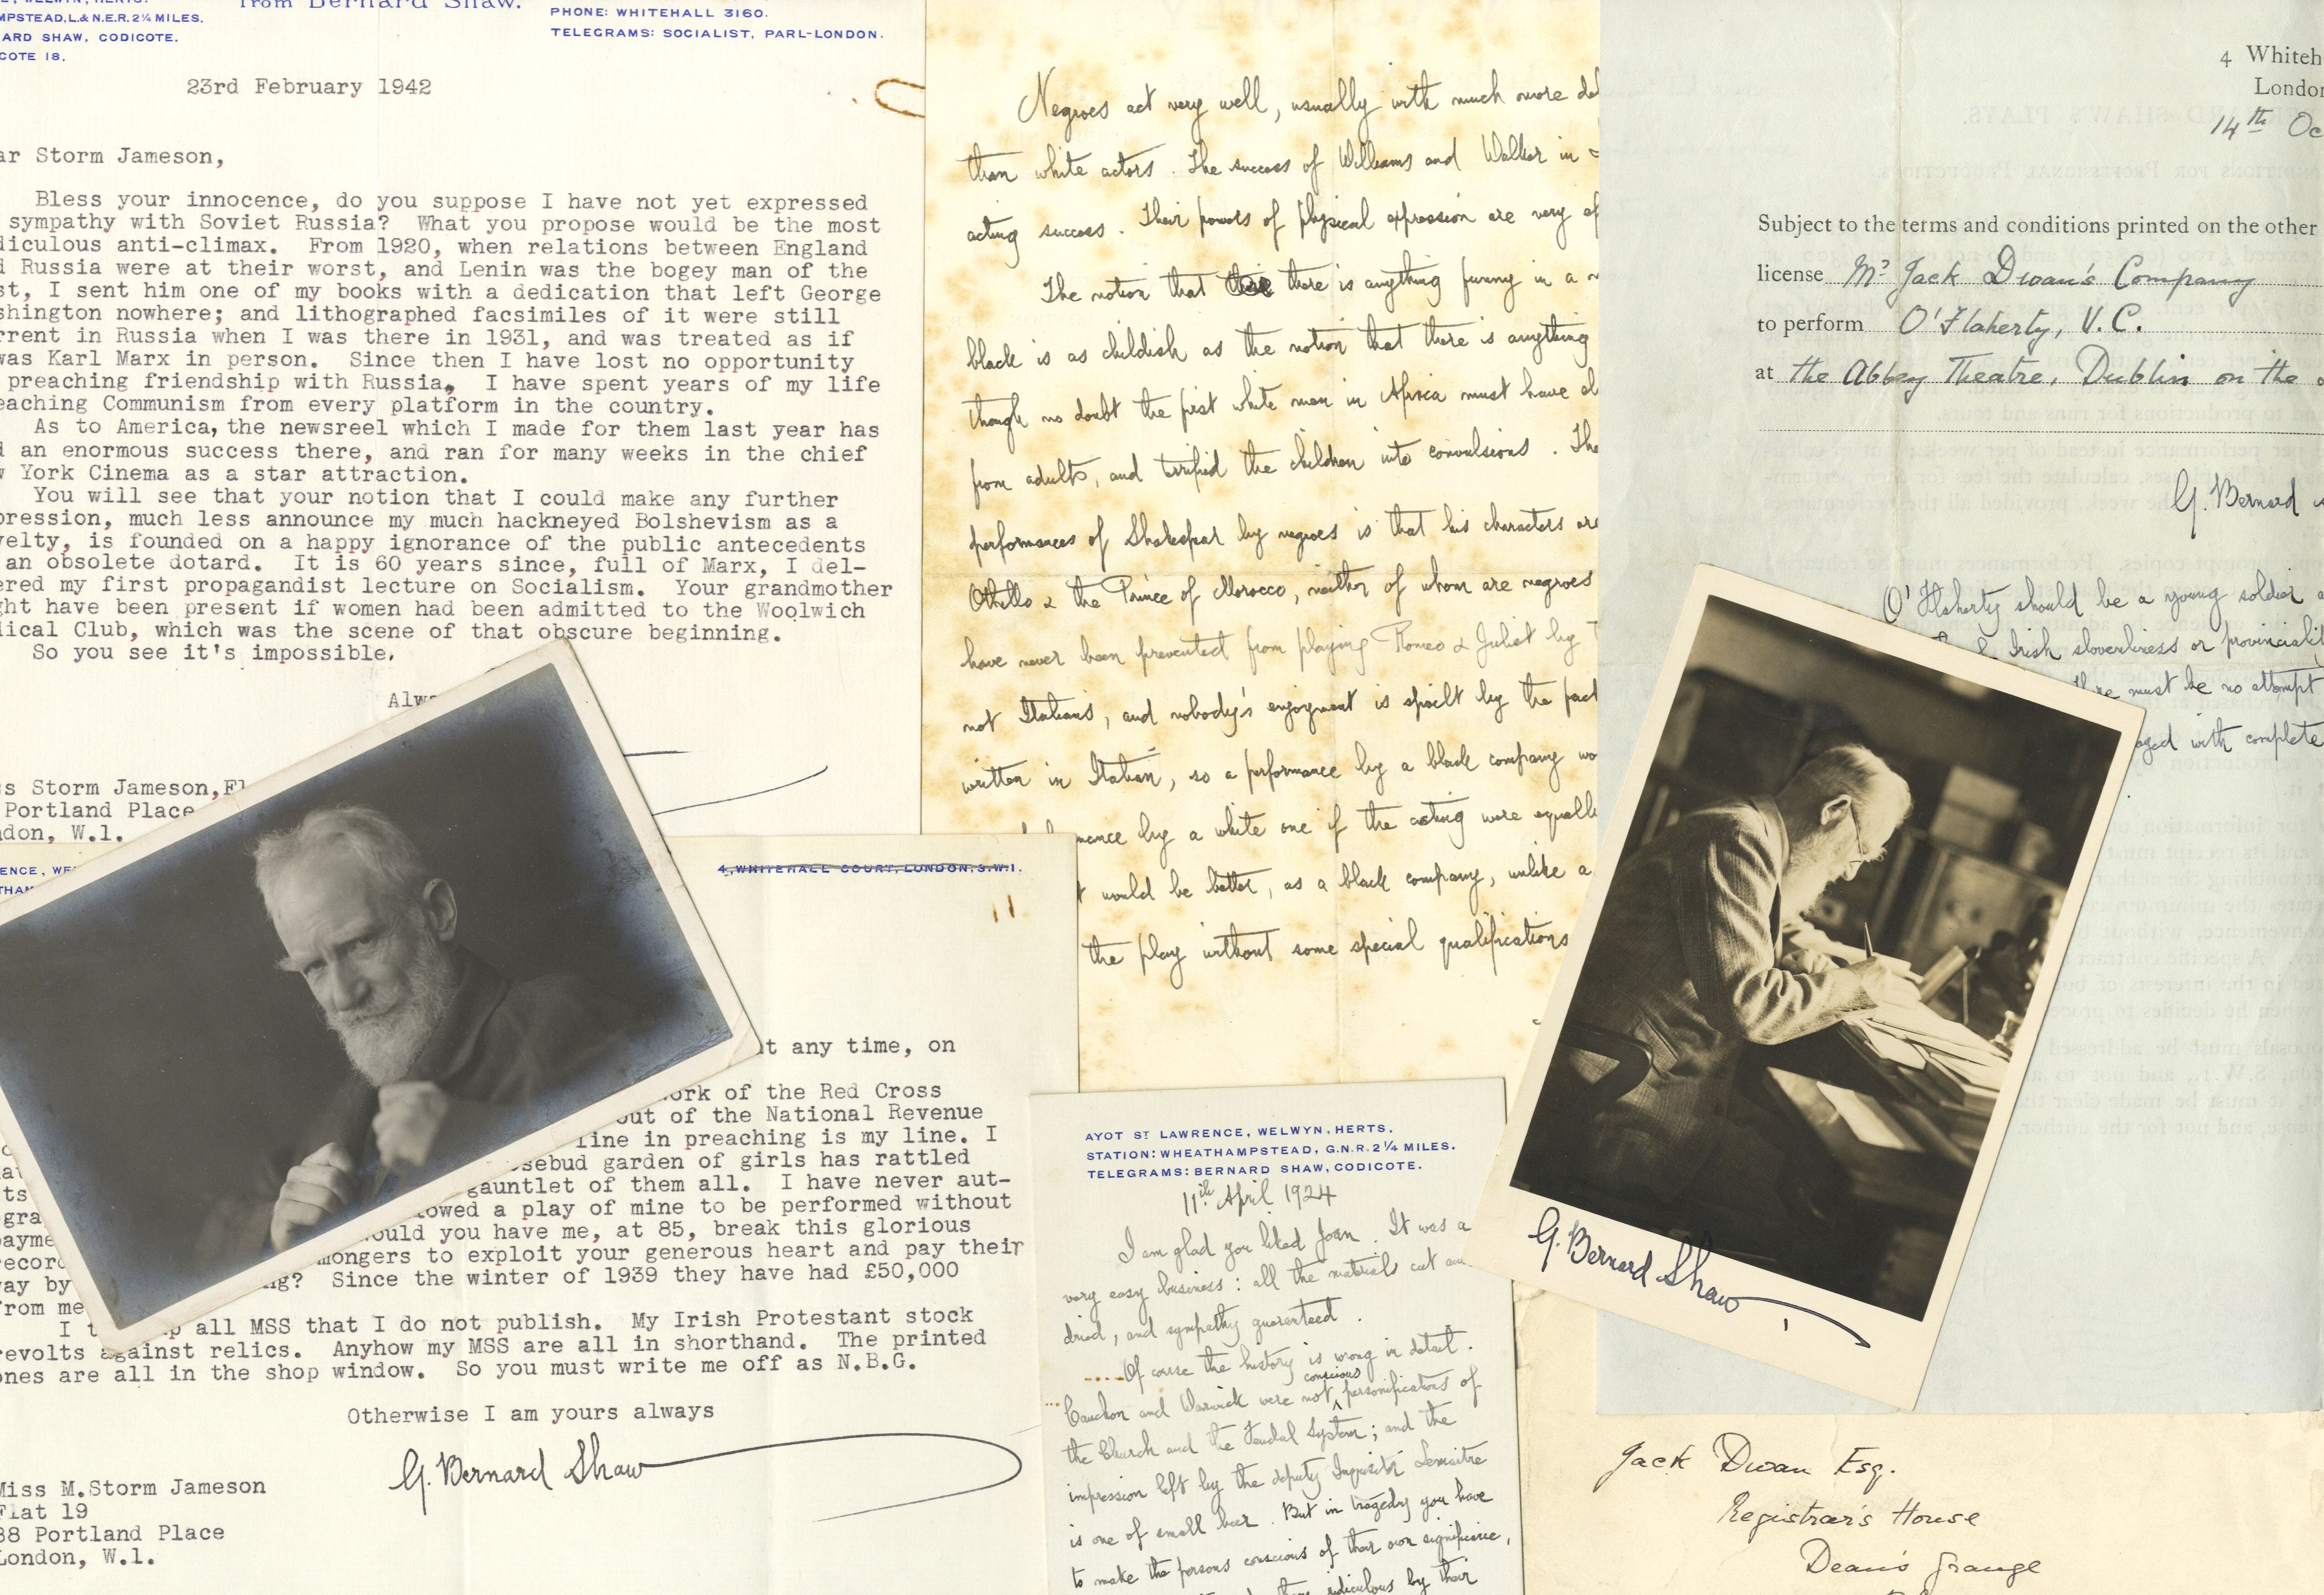 from Bernard Shaw.
MPSTEAD, L.& N.E.R. 2¼ MILES.
ARD SHAW, CODICOTE.
COTE 18.
PHONE: WHITEHALL 3160.
TELEGRAMS: SOCIALIST, PARL-LONDON.
23rd February 1942
ar Storm Jameson,
Bless your innocence, do you suppose I have not yet expressed
sympathy with Soviet Russia? What you propose would be the most
diculous anti-climax. From 1920, when relations between England
d Russia were at their worst, and Lenin was the bogey man of the
st, I sent him one of my books with a dedication that left George
shington nowhere; and lithographed facsimiles of it were still
rrent in Russia when I was there in 1931, and was treated as if
was Karl Marx in person. Since then I have lost no opportunity
preaching friendship with Russia. I have spent years of my life
eaching Communism from every platform in the country.
As to America, the newsreel which I made for them last year has
d an enormous success there, and ran for many weeks in the chief
w York Cinema as a star attraction.
You will see that your notion that I could make any further
pression, much less announce my much hackneyed Bolshevism as a
velty, is founded on a happy ignorance of the public antecedents
an obsolete dotard. It is 60 years since, full of Marx, I del-
ered my first propagandist lecture on Socialism. Your grandmother
ght have been present if women had been admitted to the Woolwich
dical Club, which was the scene of that obscure beginning.
So you see it's impossible.
Alw
s Storm Jameson, Fl
Portland Place
ndon, W.1.
Negroes act very well, usually with much more del
than white actors. The success of Williams and Walker in
acting success. Their powers of physical expression are very ef
The notion that there is anything funny in a
black is as childish as the notion that there is anything
though no doubt the first white man in Africa must have
from adults, and terrified the children into convulsions. The
performances of Shakespear by negroes is that his characters are
Othello & the Prince of Morocco, neither of whom are negroes
have never been prevented from playing Romeo & Juliet by
not Italians, and nobody's enjoyment is spoilt by the fact
written in Italian, so a performance by a black company wo
mance by a white one if the acting were equall
would be better, as a black company, unlike a
the play without some special qualifications
4 Whiteh
London
14th Oc
Subject to the terms and conditions printed on the other
license Mr Jack Dwan's Company
to perform O'Flaherty, V.C.
at the Abbey Theatre, Dublin on the
G. Bernard
O'Flaherty should be a young soldier
Irish slovenliness or provincialit
there must be no attempt
aged with complete
ENCE, WE
THAM
4, WHITEHALL COURT, LONDON, S.W.1.
at any time, on
ork of the Red Cross
out of the National Revenue
line in preaching is my line. I
osebud garden of girls has rattled
gauntlet of them all. I have never aut-
lowed a play of mine to be performed without
ould you have me, at 85, break this glorious
mongers to exploit your generous heart and pay their
way by ng? Since the winter of 1939 they have had £50,000
from me
I t p all MSS that I do not publish. My Irish Protestant stock
revolts against relics. Anyhow my MSS are all in shorthand. The printed
ones are all in the shop window. So you must write me off as N.B.G.
Otherwise I am yours always
G. Bernard Shaw
Miss M.Storm Jameson
Flat 19
88 Portland Place
London, W.1.
AYOT ST LAWRENCE, WELWYN, HERTS.
STATION: WHEATHAMPSTEAD, G.N.R. 2¼ MILES.
TELEGRAMS: BERNARD SHAW, CODICOTE.
11th April 1924
I am glad you liked Joan. It was a
very easy business: all the materials cut an
dried, and sympathy guaranteed.
Of course the history is wrong in detail.
Cauchon and Warwick were not conscious personifications of
the Church and the Feudal System; and the
impression left by the deputy Inquisitor Lemaitre
is one of small beer. But in tragedy you have
to make the persons conscious of their own significance,
ridiculous by their
G. Bernard Shaw
Jack Dwan Esq.
Registrar's House
Dean's Grange